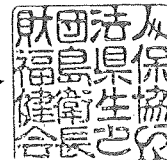 財団法人
福島県保
健衛生協
会長之印